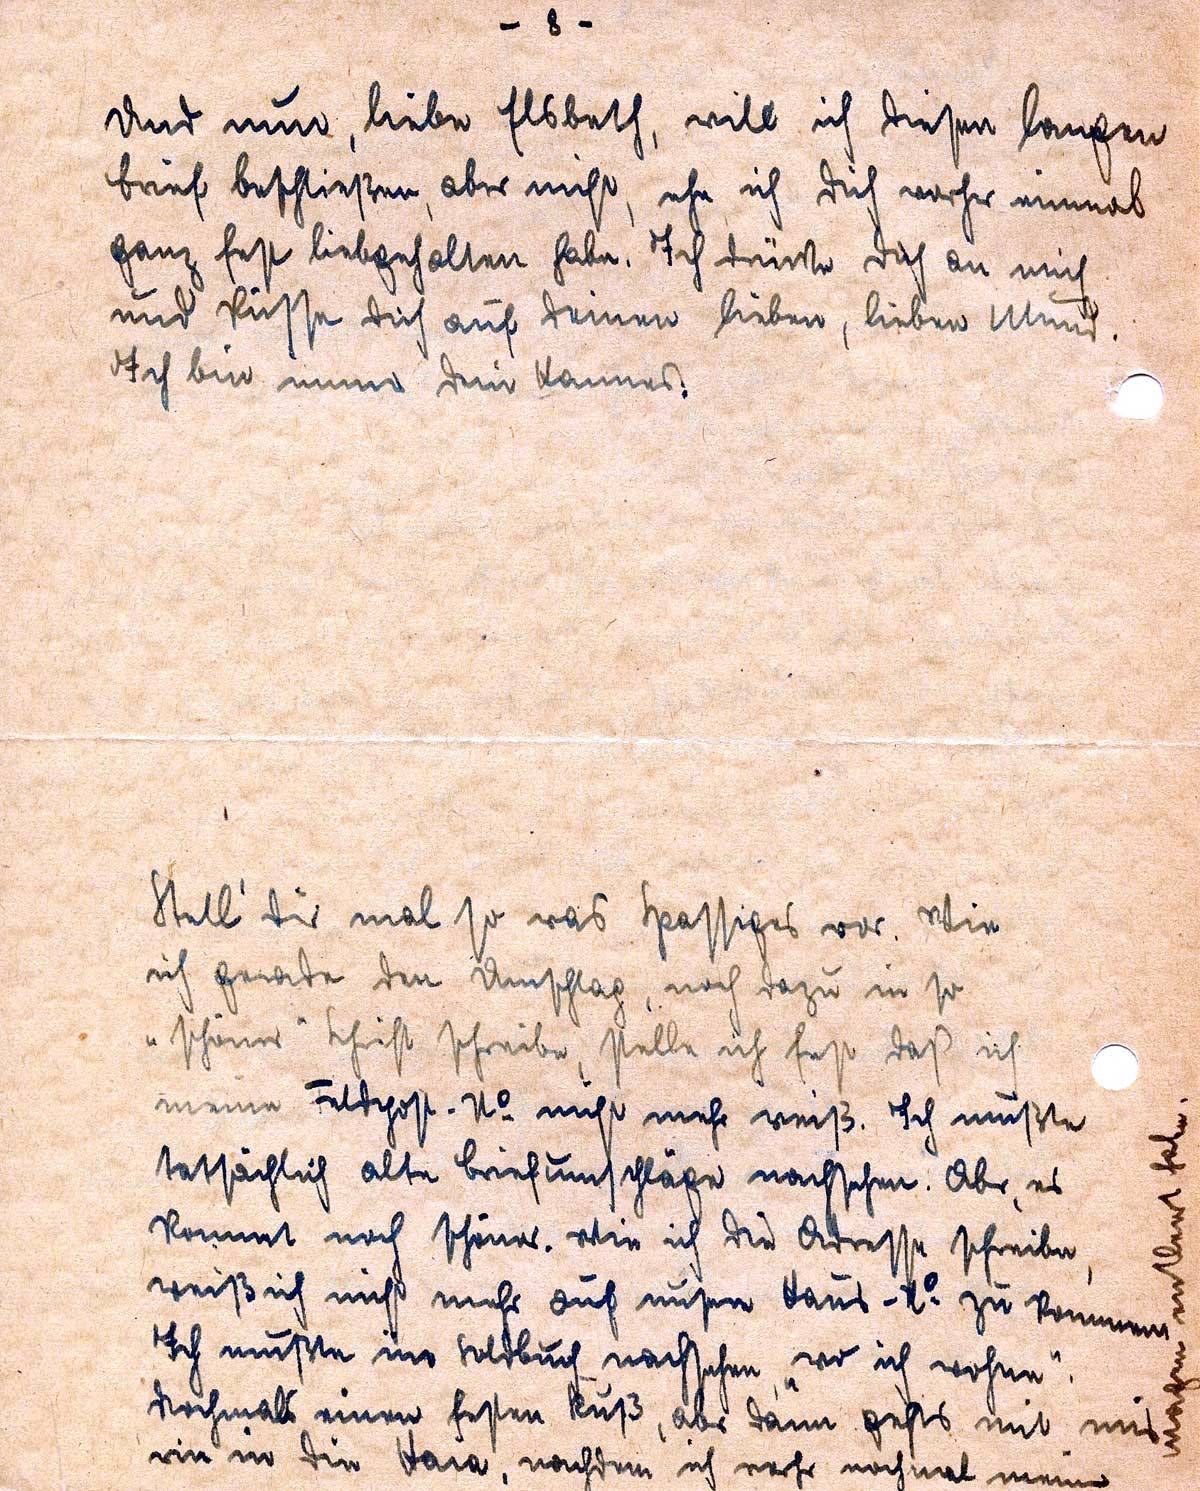 - 8 -
Und nun, liebe Elsbeth, will ich diesen langen
Brief beschließen, aber nicht, ehe ich Dich vorher einmal
ganz fest liebgehalten habe. Ich drücke Dich an mich
und küsse Dich auf Deinen lieben, lieben Mund.
Ich bin immer Dein Hannes.
Stell' Dir mal so was Spassiges vor. Wie
ich gerade den Umschlag, noch dazu in so
„schöner" Schrift schreibe, stelle ich fest daß ich
meine Feldpost-No nicht mehr weiß. Ich mußte
tatsächlich alte Briefumschläge nachsehen. Aber, es
kommt noch schöner. Wie ich die Adresse schreibe,
weiß ich nicht mehr auf unsere Haus-No. zu kommen
Ich mußte im Soldbuch nachsehen, „wo ich wohne".
Nochmals einen festen Kuß, aber dann gehts mit mir
rin in die Haia, nachdem ich vorher nochmal meinen
Magen entleert habe.